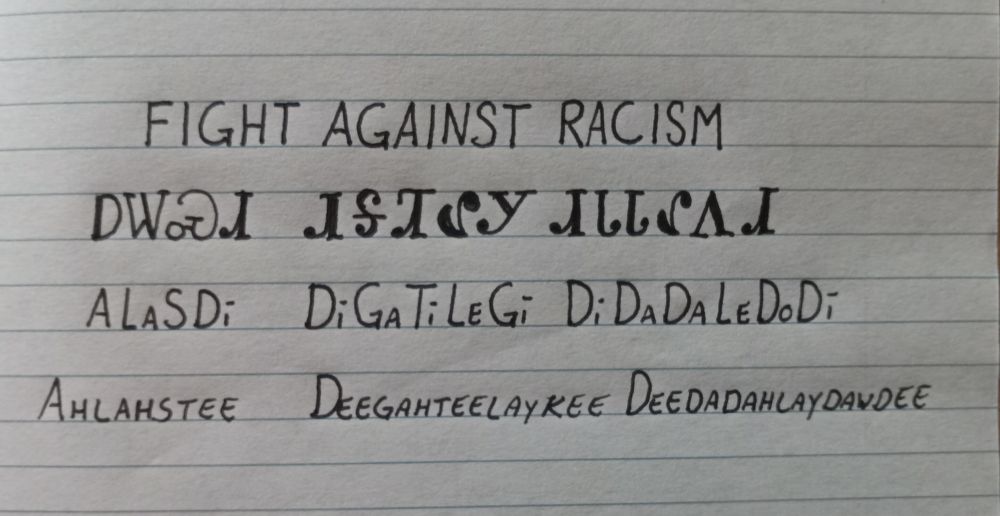 FIGHT AGAINST RACISM
ᎠᎳᏍᏗ ᏗᎦᏘᎴᎩ ᏗᏓᏓᎴᏙᏗ
ALASDi DiGATiLEGi DiDADALEDODi
AHLAHSTEE DEEGAHTEELAYKEE DEEDADAHLAYDAWDEE